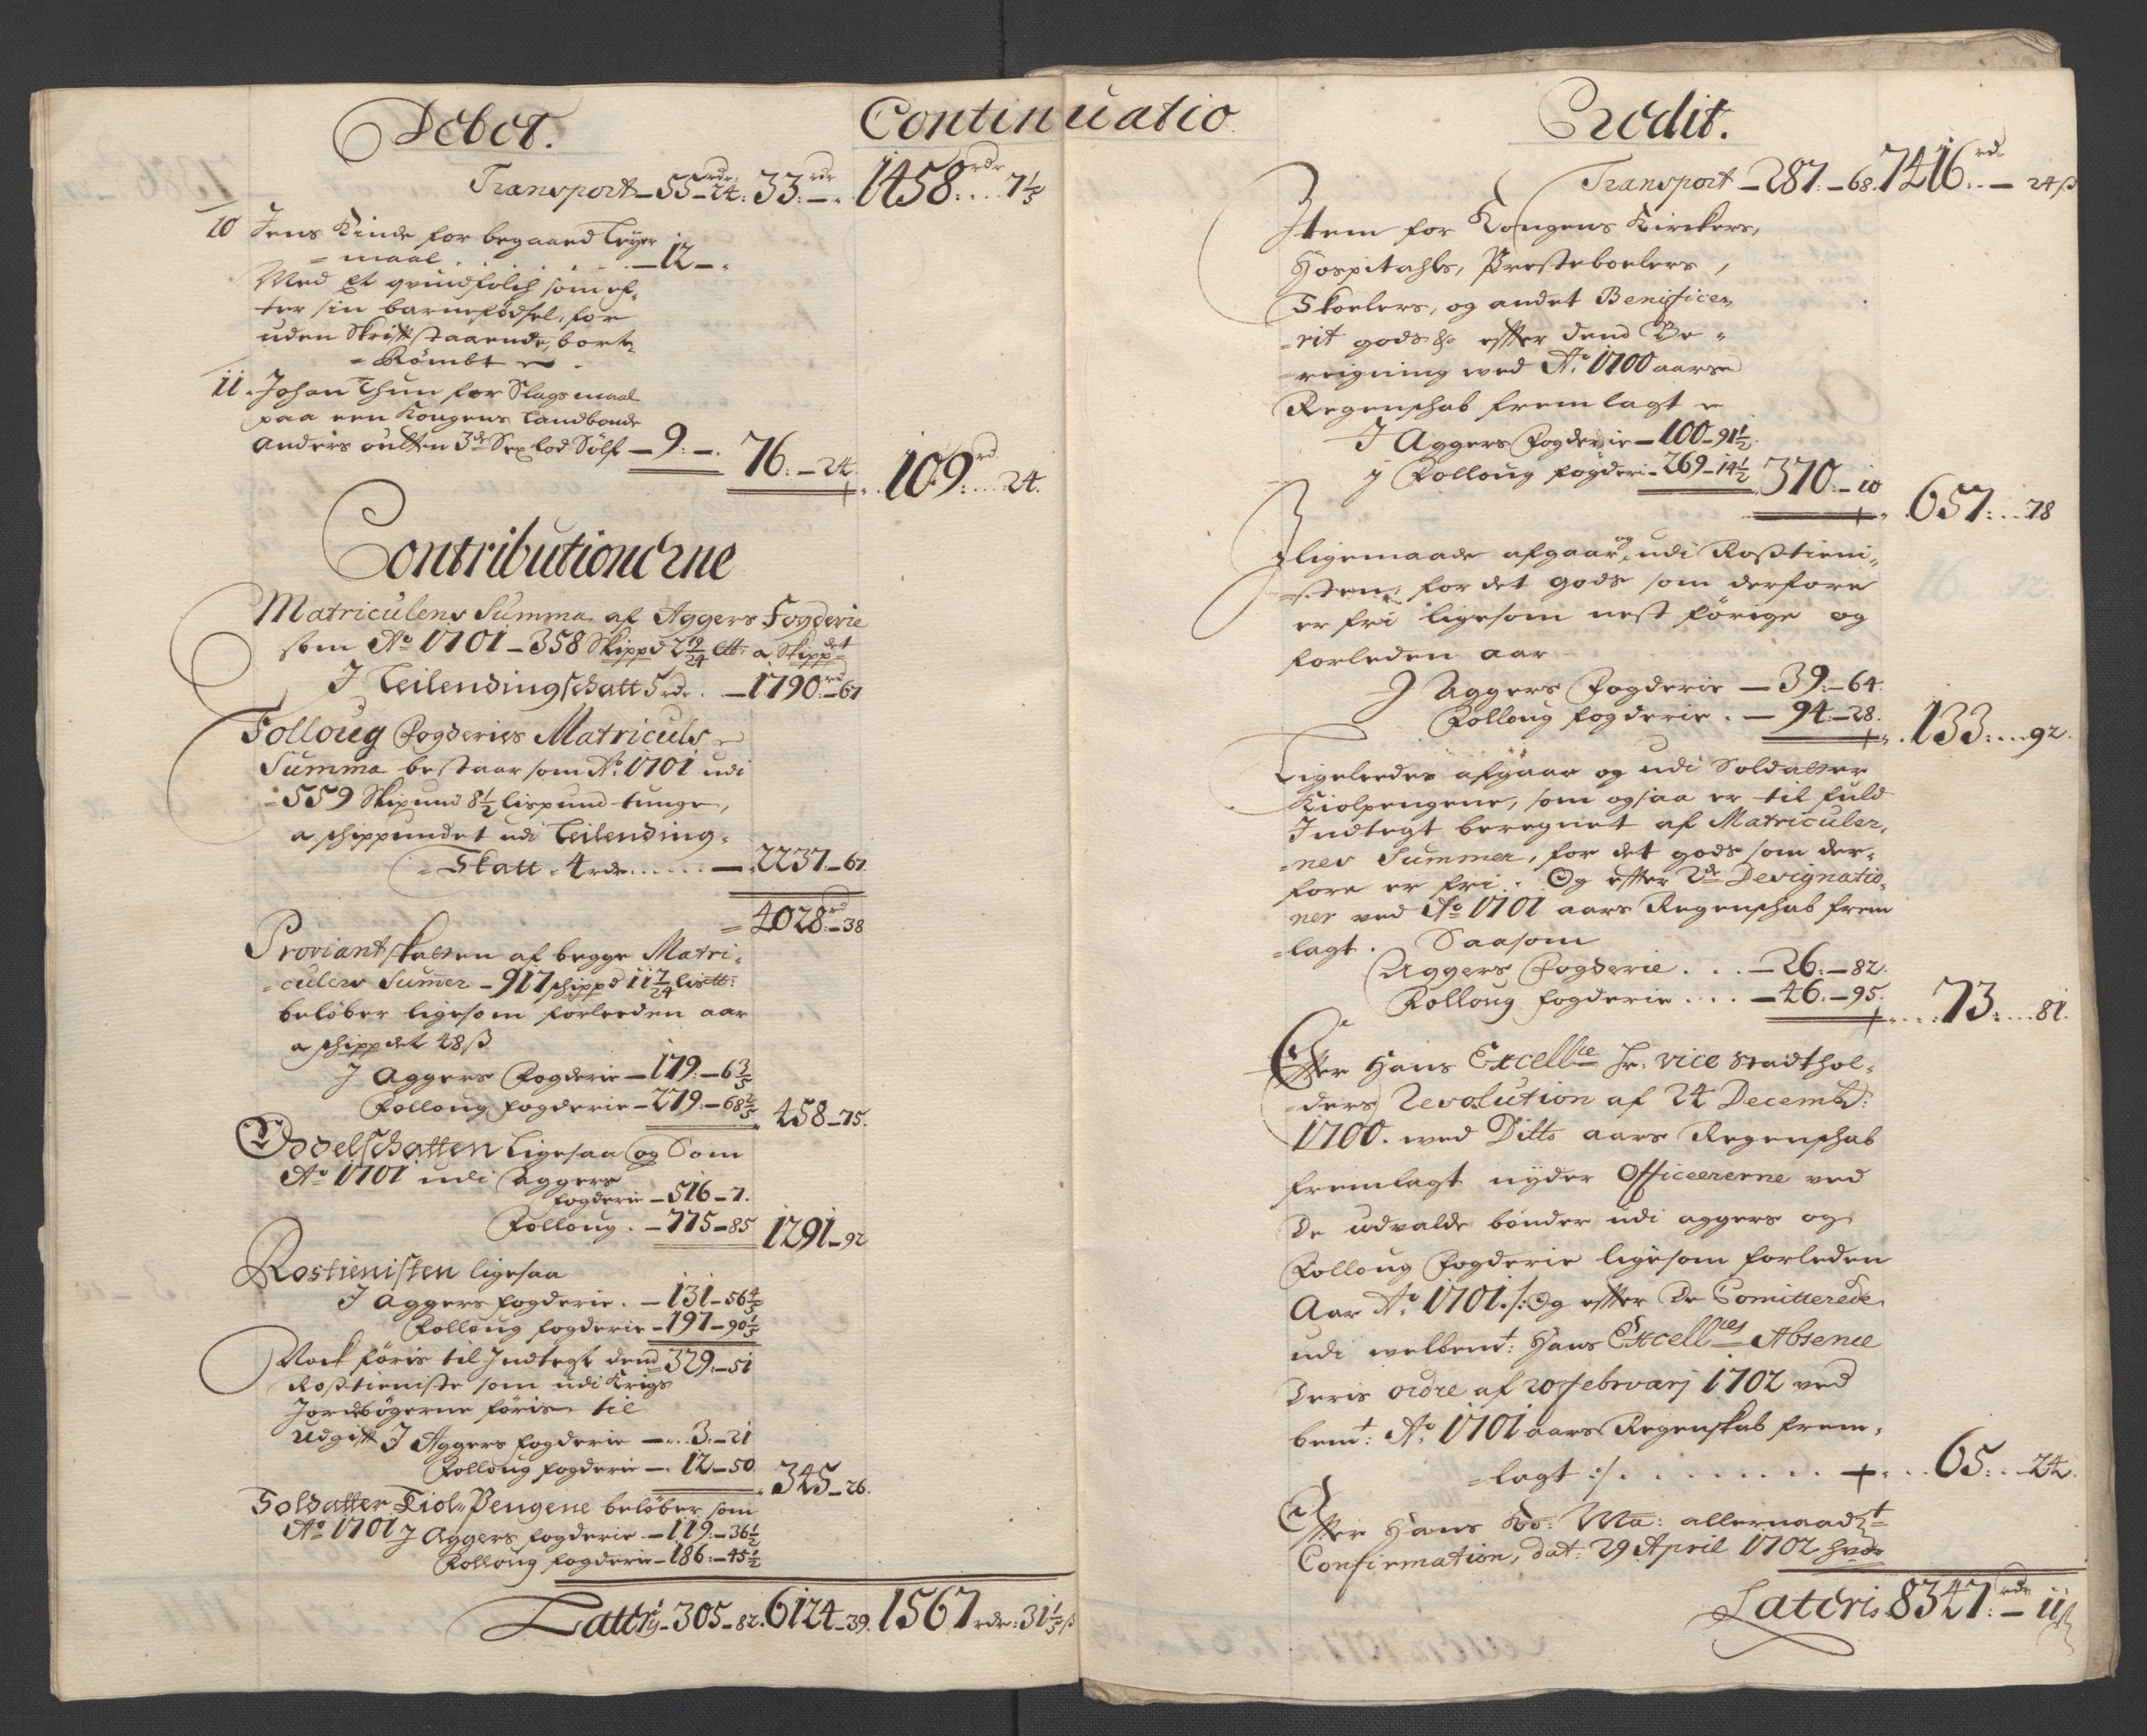 Debet.
Continuatio
Transport – 55 rdr – 24: 33: rdr – . 1458: rdr . . 7 1/5
10 Jens Kinde for begaaed Leyer
= maal . . . . . – 12 – „
Med Et qvindfolch som ef„
ter sin barnefödsel, for
uden Skriftstaaende, bort„
= Römbt er
11. Johan Thun for Slagsmaal
paa een Kongens Landbonde
Anders oulten 3de Sex lod Sölf – 9: – . 76: – 24. 109: rd . . 24.
Contributionerne
Matriculens Summa af Aggers Fogderie
som Ao 1701 – 358 Skippd 2 19/24 lb: a Skippdet
J Leilendingschatt 5 rdr . – 1790: rd – 67
Folloug Fogderies Matriculs
Summa bestaar som Ao. 1701 udi
= 559 Skipund 8 1/2 lispund tunge,
a schippundet udi Leilending„
= Skatt „ 4 rdr . . . . . . – 2237. – 67.
= 4028: rd – 38
Proviantskatten af begge Matri„
= culers Sumer – 917 schippd 11 7/24 lislb:
belöber ligesom forleeden aar
a schippdet 48 ß
J Aggers Fogderie – 179: – 6 3/5
Folloug fogderie – 279: – 68 2/5 458 – 75.
Oddelschatten Ligesaa og Som
Ao 1701 udi Aggers
fogderie – 516 – 7.
Folloug . – 775 – 85 1291 – 92
Rostienisten ligesaa
J Aggers fogderie . – 131 – 56 4/5
Folloug fogderie – 197 – 90 1/5
Nock föris til Jndtegt dend = 329: – 51
Roßtieniste som udi Krigs
Jordebögerne föris til
Udgift J Aggers fogderie – . . 3: – 21
Folloug fogderie – . 12 – 50 345 – 26.
Soldatter Kiol„ Pengene belöber som
Ao 1701 J Aggers fogderie – 119: – 36 1/2
Folloug fogderie – 186: – 45 1/2
Lattris – 305 – 82. 6124 – 39. 1567 rdr: 31 1/5 ß
Credit.
Transport – 287: – 68. 7416: rdr – 24 ß
Jtem for Kongens Kirckers,
Hospitahls, Presteboelers,
Skoelers, og andet Benificen
= rit gods &c effter dend Be „
= reigning wed Ao. 1700 aars
Regenschab fremlagt er
J Aggers Fogderie – 100 – 91 1/2.
J Folloug fogderi – 269 – 14 1/2 370: – 10 . 657: . . 78
Jligemaade afgaar og udi Roßtieni„
= sten, for det gods som derfore
er fri ligesom nest förige og
forleden aar
J Aggers Fogderie – 39: – 64.
Folloug fogderie . – 94: – 28. . 133: . . . 92.
Ligeleedes afgaar og udi Soldatter
Kiolpengene, som ogsaa er til fuld
Jndtegt beregnet af Matriculer„
= nes Summer, for det gods som der„
fore er fri. Og effter 2de Designatio„
ner ved Ao 1701 aars Regenschab frem
= lagt. Saasom
Aggers Fogderie . . . – 26: – 82.
Folloug fogderie . . . . – 46: – 95. . . . 73: . . . 81.
Effter Hans Excellce Hr: vice Stadthol„
= ders Resolution af 24 Decembd:
1700. wed Ditto aars Regenschab
fremlagt nyder Officeererne ved
De udvalde bönder udi aggers og
Folloug Fogderie ligesom forleden
Aar Ao. 1701. /: Og effter De Comitterede
udi welbemt: Hans Excellces Absence
Deris ordre af 20 februarj 1702 ved
bemt: Ao. 1701 aars Regenskab frem„
= lagt :/ . . . . . . . . . 65: . . 24.
Effter Hans Ko: Ma: allernaadt
Confirmation, dat: 29 April 1702 Hvor
Lateris 8327: rdr – 11 ß